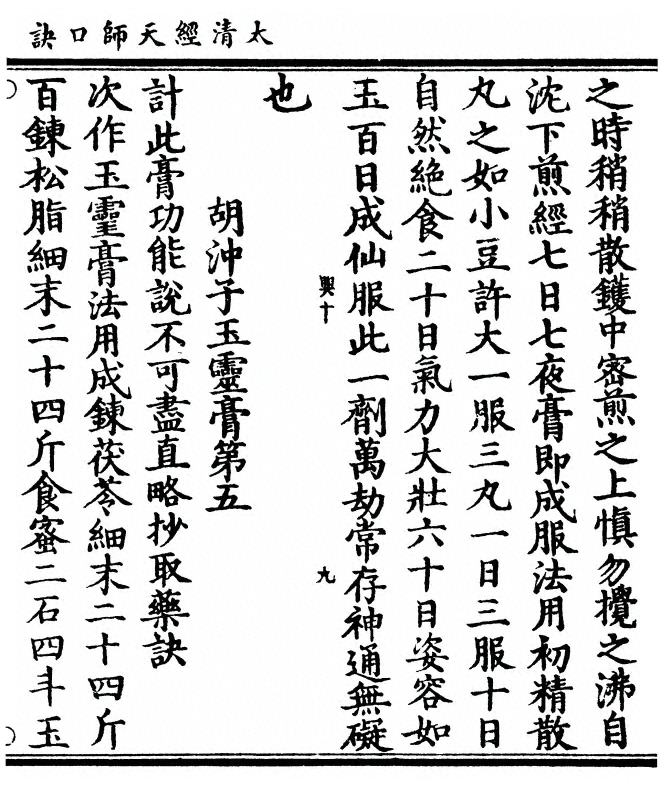 太清經天師口訣
之時稍稍散鑊中密煎之上慎勿攪之沸自
沈下煎經七日七夜膏即成服法用初精散
丸之如小豆許大一服三丸一日三服十日
自然絶食二十日氣力大壯六十日姿容如
玉百日成仙服此一劑萬劫常存神通無礙
興十
九
也
胡沖子玉靈膏第五
計此膏功能說不可盡直略抄取藥訣
次作玉靈膏法用成鍊茯苓細末二十四斤
百鍊松脂細末二十四斤食蜜二石四斗玉